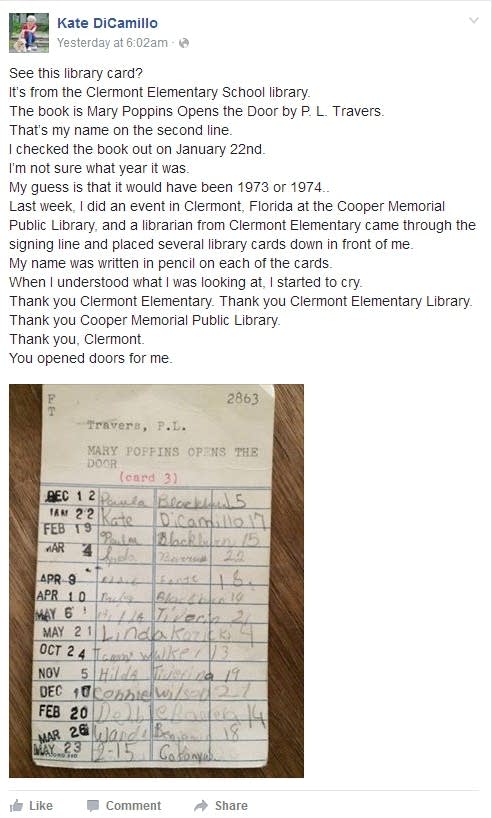 Kate DiCamillo
Yesterday at 6:02am ·
See this library card?
It's from the Clermont Elementary School library.
The book is Mary Poppins Opens the Door by P. L. Travers.
That's my name on the second line.
I checked the book out on January 22nd.
I'm not sure what year it was.
My guess is that it would have been 1973 or 1974..
Last week, I did an event in Clermont, Florida at the Cooper Memorial
Public Library, and a librarian from Clermont Elementary came through the
signing line and placed several library cards down in front of me.
My name was written in pencil on each of the cards.
When I understood what I was looking at, I started to cry.
Thank you Clermont Elementary. Thank you Clermont Elementary Library.
Thank you Cooper Memorial Public Library.
Thank you, Clermont.
You opened doors for me.
F 2863
T
Travers, P.L.
MARY POPPINS OPENS THE
DOOR
(card 3)
DEC 12 Paula Blackburn 15
JAN 22 Kate DiCamillo 17
FEB 19 Paula Blackburn 15
MAR 4 22
APR 9 18
APR 10 14
MAY 6 Hilda Tiverin
MAY 21 Linda 4
OCT 24 Walker 13
NOV 5 Hilda 19
DEC 10 Connie Wilson
FEB 20 14
MAR 26 Wanda Benjamin 18
MAY 23 2-15
Like Comment Share